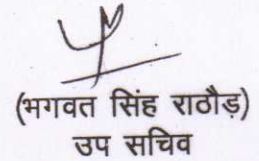 (भगवत सिंह राठौड़)
उप सचिव